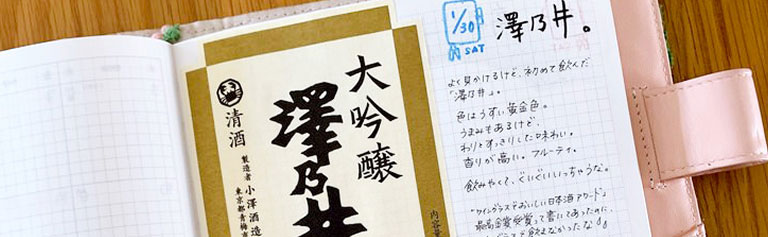 大吟醸
澤乃井
清酒
製造者 小澤酒造
東京都青梅市
内容量
1/30
SAT
澤乃井。
よく見かけるけど、初めて飲んだ
「澤乃井」。
色はうすい黄金色。
うまみもあるけど、
わりとすっきりした味わい。
香りが高い。フルーティ。
飲みやくて、ぐいぐいいっちゃうな。
"ワイングラスでおいしい日本酒アワード"
最高金賞受賞って書いてあったのに、
グラスで飲まなかったな